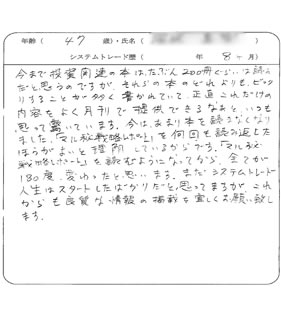 年齢( 47 歳)・氏名(
システムトレード歴( 年 8ヶ月)
今まで投資関連の本はたぶん200冊ぐらいは読ん
だと思うのですが、それらの本のどれよりもビック
リすることが多く書かれていて、正直これだけの
内容をよく月刊で提供できるなあと、いつも
思って驚いています。今はあまり本を読まなくなり
ました。「マル秘戦略レポート」を何回も読み返した
ほうがよいと理解しているからです。「マル秘
戦略レポート」を読むようになってから、全てが
180度、変わったと思います。まだシステムトレード
人生はスタートしたばかりだと思ってますが、これ
からも良質な情報の掲載を宜しくお願い致し
ます。